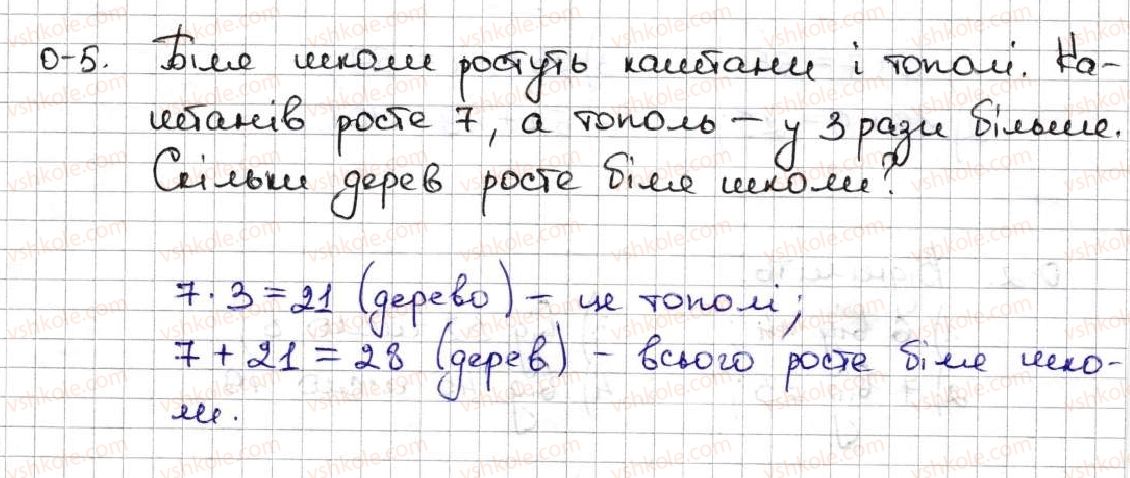 0-5. Біля школи ростуть каштани і тополі. Ка-
штанів росте 7, а тополь – у 3 рази більше.
Скільки дерев росте біля школи?
7 · 3 = 21 (дерево) – це тополі;
7 + 21 = 28 (дерев) – всього росте біля шко-
ли.